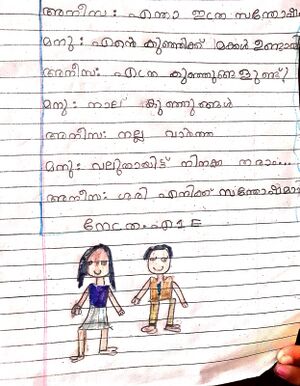 അനീസ: എന്താ ഇത്ര സന്തോഷ
മനു: എന്റെ കുഞ്ഞിക്ക് മക്കൾ ഉണ്ടായ
അനീസ: എത്ര കുഞ്ഞുങ്ങളുണ്ട്?
മനു: നാല് കുഞ്ഞുങ്ങൾ
അനീസ: നല്ല വാർത്ത
മനു: വലുതായിട്ട് നിനക്ക് തരാം...
അനീസ: ശരി എനിക്ക് സന്തോഷമാ